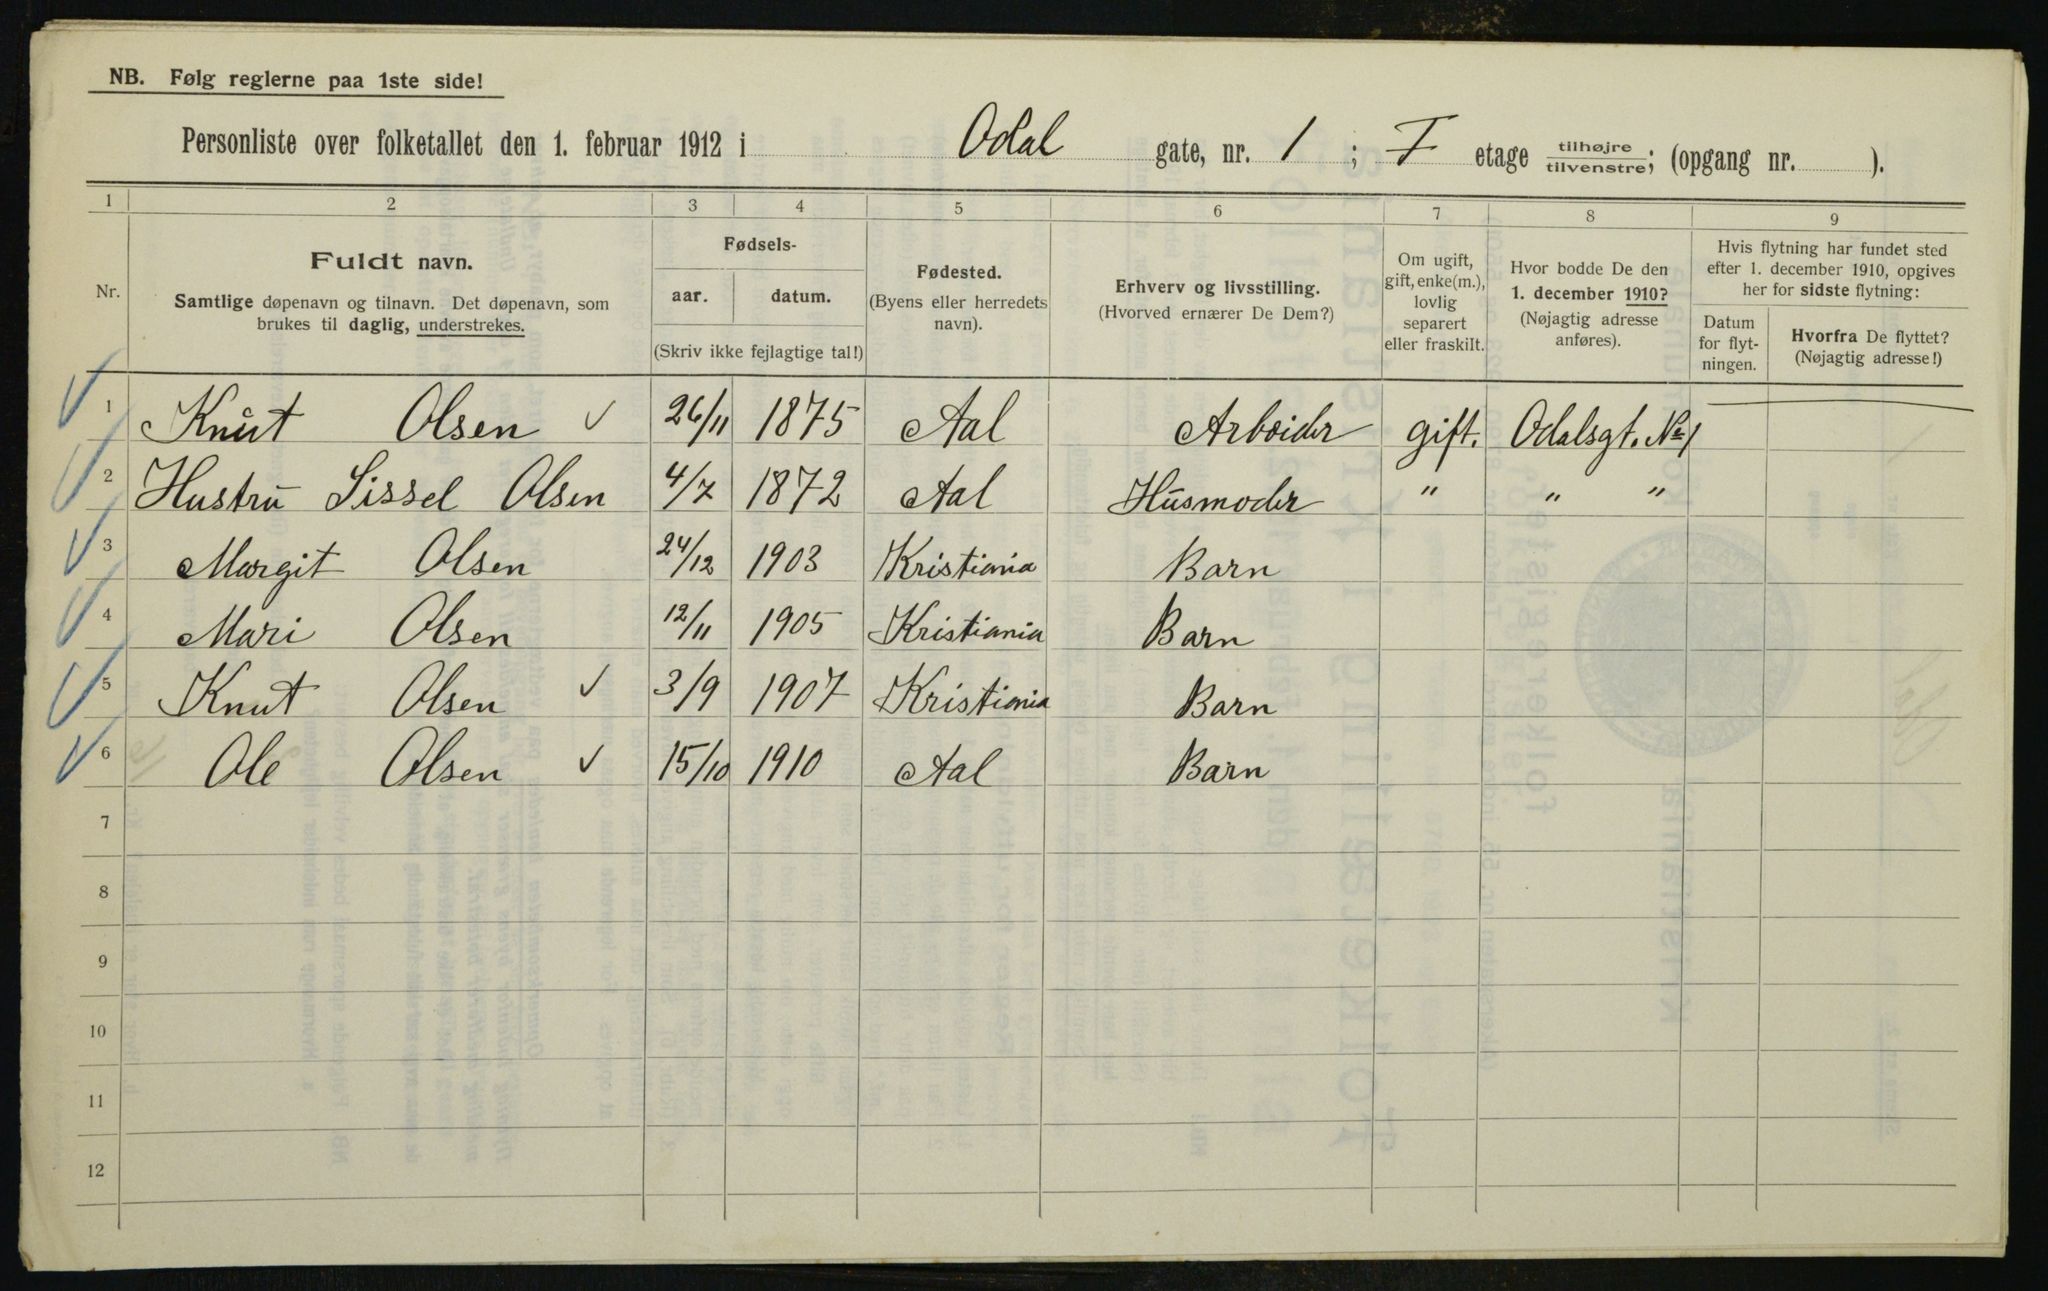 NB. Følg reglerne paa 1ste side!
Personliste over folketallet den 1. februar 1912 i Odal gate, nr. 1 ; I etage tilhøjre tilvenstre; (opgang nr. ).
1 2 3 4 5 6 7 8 9
Nr.
Fuldt navn.
Samtlige døpenavn og tilnavn. Det døpenavn, som
brukes til daglig, understrekes.
Fødsels-
aar. datum.
(Skriv ikke fejlagtige tal!)
Fødested.
(Byens eller herredets
navn).
Erhverv og livsstilling.
(Hvorved ernærer De Dem?)
Om ugift,
gift, enke(m.),
lovlig
separert
eller fraskilt.
Hvor bodde De den
1. december 1910?
(Nøjagtig adresse
anføres).
Hvis flytning har fundet sted
efter 1. december 1910, opgives
her for sidste flytning:
Datum
for flyt-
ningen.
Hvorfra De flyttet?
(Nøjagtig adresse!)
1 Knut Olsen 26/11 1875 Aal Arbeider gift. Odalsgt. No 1
2 Hustru Sissel Olsen 4/7 1872 Aal Husmoder " " "
3 Margit Olsen 24/12 1903 Kristiania Barn
4 Mari Olsen 12/11 1905 Kristiania Barn
5 Knut Olsen 3/9 1907 Kristiania Barn
6 Ole Olsen 15/10 1910 Aal Barn
7
8
9
10
11
12